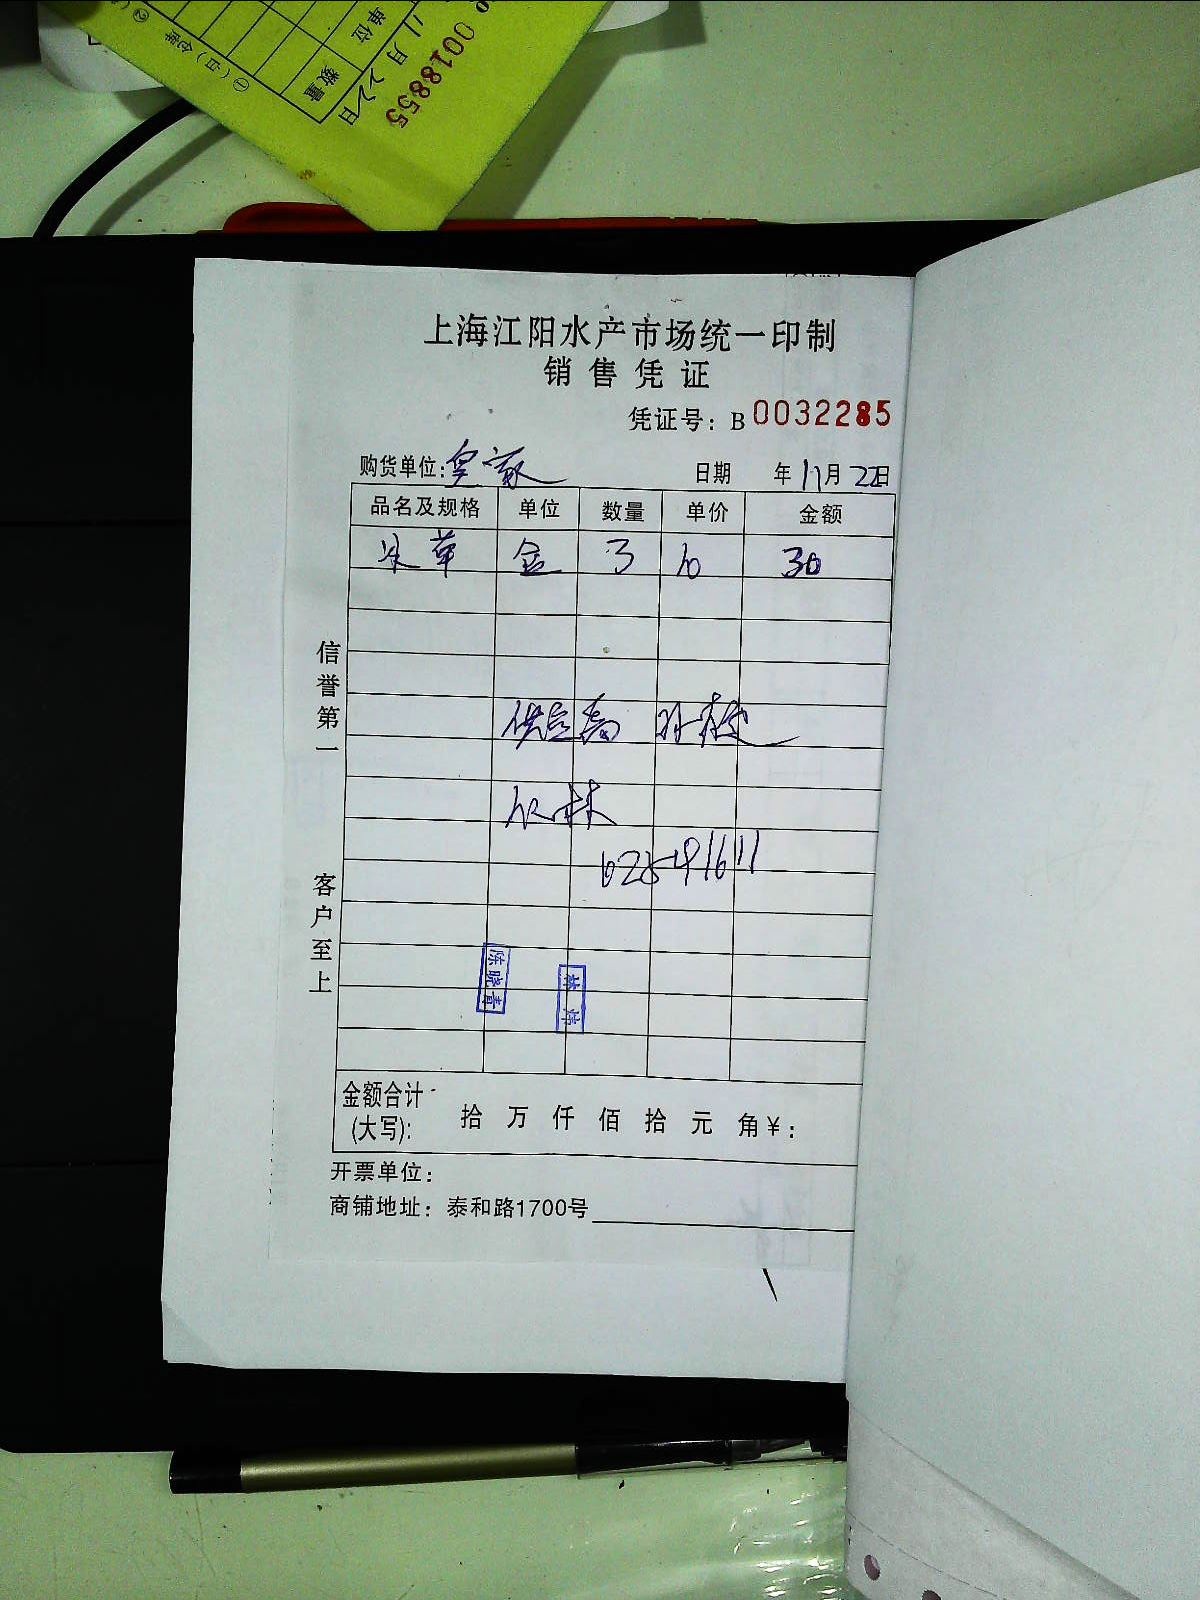 0018855
单位
11月22日
数量
①(白)仓库
②
上海江阳水产市场统一印制
销售凭证
凭证号：B 0032285
购货单位:皇家 日期 年 11月 22日
品名及规格 单位 数量 单价 金额
冰草 盒 3 10 30
信誉第一
供应商
客户至上
陈晓青
林
金额合计(大写): 拾 万 仟 佰 拾 元 角 ￥:
开票单位:
商铺地址: 泰和路1700号